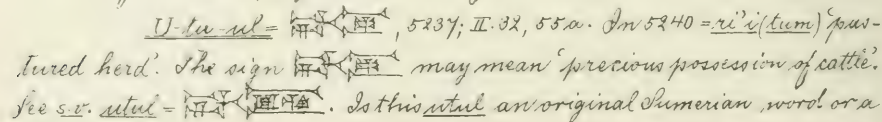 U-tu-ul = , 5237; II. 32, 55a. In 5240 = ri'i(tum) 'pas-
tured herd'. The sign may mean 'precious possession of cattle'.
See s.v. utul = . Is this utul an original Sumerian word or a